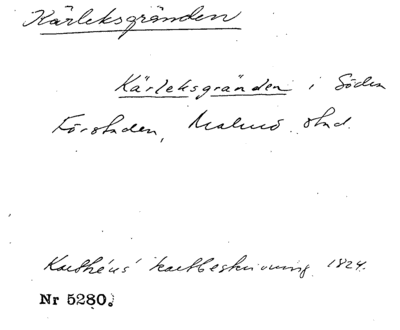 Kärleksgränden
Kärleksgränden i Södra
Förstaden, Malmö stad.
Kuthéus' kartbeskrivning 1824.
Nr 5280.